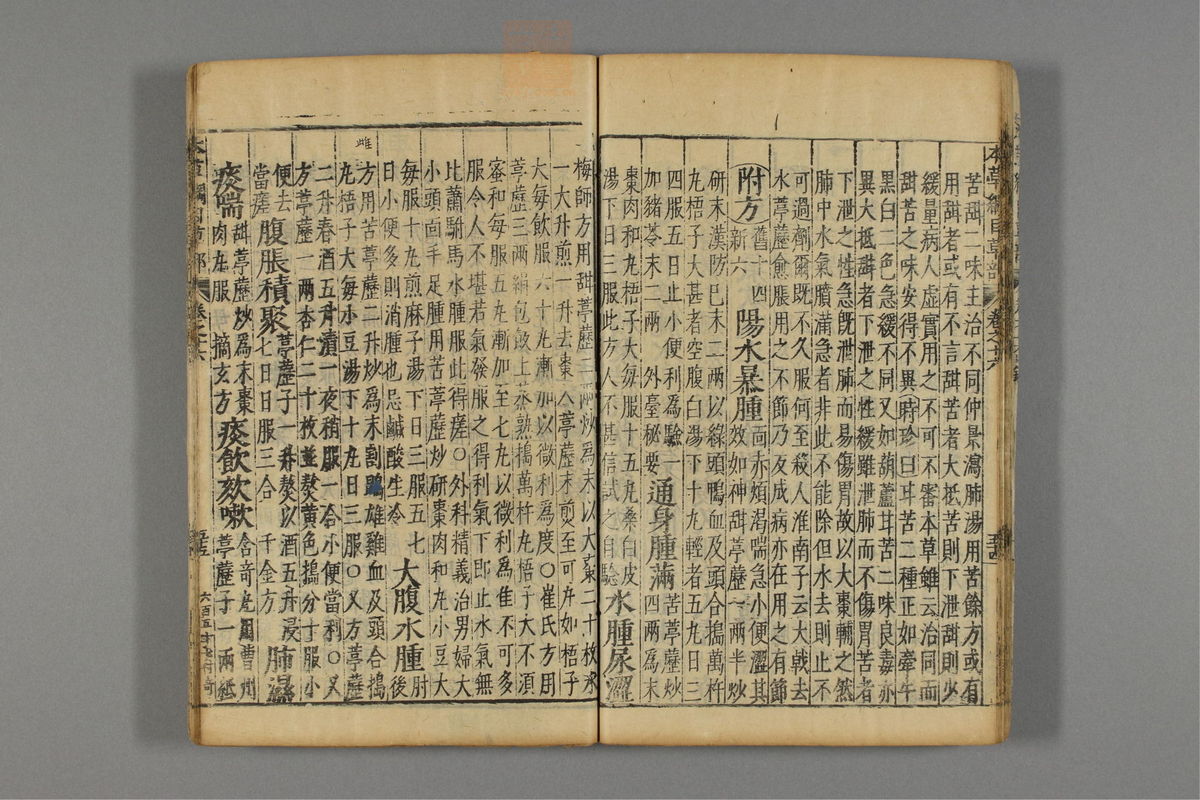 苦甜二味主治不同仲景瀉肺湯用苦餘方或有
用甜者或有不言甜苦者大抵苦則下泄甜則少
緩量病人虛實用之不可不審本草雖云治同而
甜苦之味安得不異時珍曰甘苦二種正如牽牛
黑白二色急緩不同又如葫蘆甘苦二味良毒亦
異大抵甜者下泄之性緩雖泄肺而不傷胃苦者
下泄之性急既泄肺而易傷胃故以大棗輔之然
肺中水氣膹滿急者非此不能除但水去則止不
可過劑爾既不久服何至殺人淮南子云大戟去
水葶藶愈脹用之不節乃反成病亦在用之有節
附方 舊十四新六 陽水暴腫 面赤煩渴喘急小便澀其效如神甜葶藶一兩半炒
研末漢防巳末二兩以綠頭鴨血及頭合搗萬杵
丸梧子大甚者空腹白湯下十丸輕者五丸日三
四服五日止小便利為驗
加豬苓末二兩 外臺秘要 通身腫滿 苦葶藶炒四兩為末
棗肉和丸梧子大每服十五丸桑白皮
湯下日三服此方人不甚信試之自驗 水腫尿澀
梅師方用甜葶藶二兩炒為末以大棗二十枚水
一大升煎一升去棗入葶藶末煎至可丸如梧子
大每飲服六十丸漸加以微利為度○崔氏方用
葶藶三兩絹包飯上蒸熟搗萬杵丸梧子大不須
蜜和每服五丸漸加至七丸以微利為佳不可多
服令人不堪若氣發服之得利氣下即止水氣無
比蕭駙馬水腫服此得瘥○外科精義治男婦大
小頭面手足腫用苦葶藶炒研棗肉和丸小豆大
每服十丸煎麻子湯下日三服五七
日小便多則消腫也忌鹹酸生冷 大腹水腫 肘後
方用苦葶藶二升炒為末割鵾雄雞血及頭合搗
雌
丸梧子大每小豆湯下十丸日三服○又方葶藶
二升春酒五升漬一夜稍服一合小便當利○又
方葶藶一兩杏仁二十枚並熬黃色搗分十服小
便去當瘥 腹脹積聚 葶藶子一升熬以酒五升浸七日日服三合 千金方 肺濕
痰喘 甜葶藶炒為末棗肉丸服 摘玄方 痰飲欬嗽 含奇丸用曹州葶藶子一兩紙